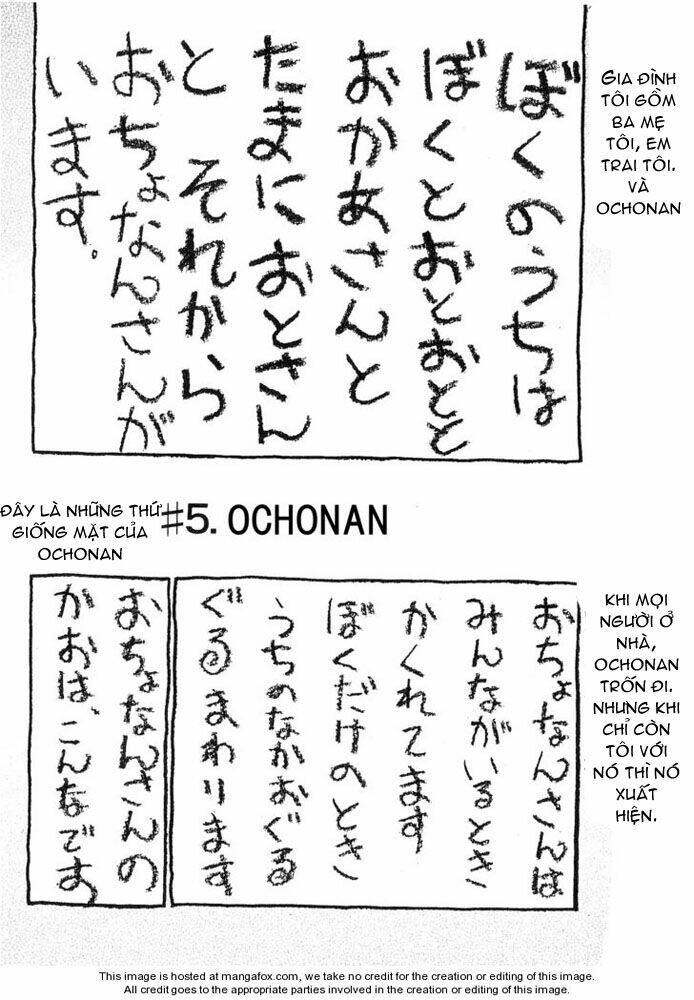 ぼくのうちは
ぼくとおとおとと
おかあさんと
たまにおとさん
と それから
おちょなんさんが
います。
GIA ĐÌNH
TÔI GỒM
BA MẸ
TÔI, EM
TRAI TÔI.
VÀ
OCHONAN
ĐÂY LÀ NHỮNG THỨ
GIỐNG MẶT CỦA
OCHONAN
#5. OCHONAN
おちょなんさんは
みんながいるとき
かくれてます
ぼくだけのとき
うちのなかおぐる
ぐるまわります
おちょなんさんの
かおは、こんなです
KHI MỌI
NGƯỜI Ở
NHÀ,
OCHONAN
TRỐN ĐI.
NHƯNG KHI
CHỈ CÒN
TÔI VỚI
NÓ THÌ NÓ
XUẤT
HIỆN.
This image is hosted at mangafox.com, we take no credit for the creation or editing of this image.
All credit goes to the appropriate parties involved in the creation or editing of this image.